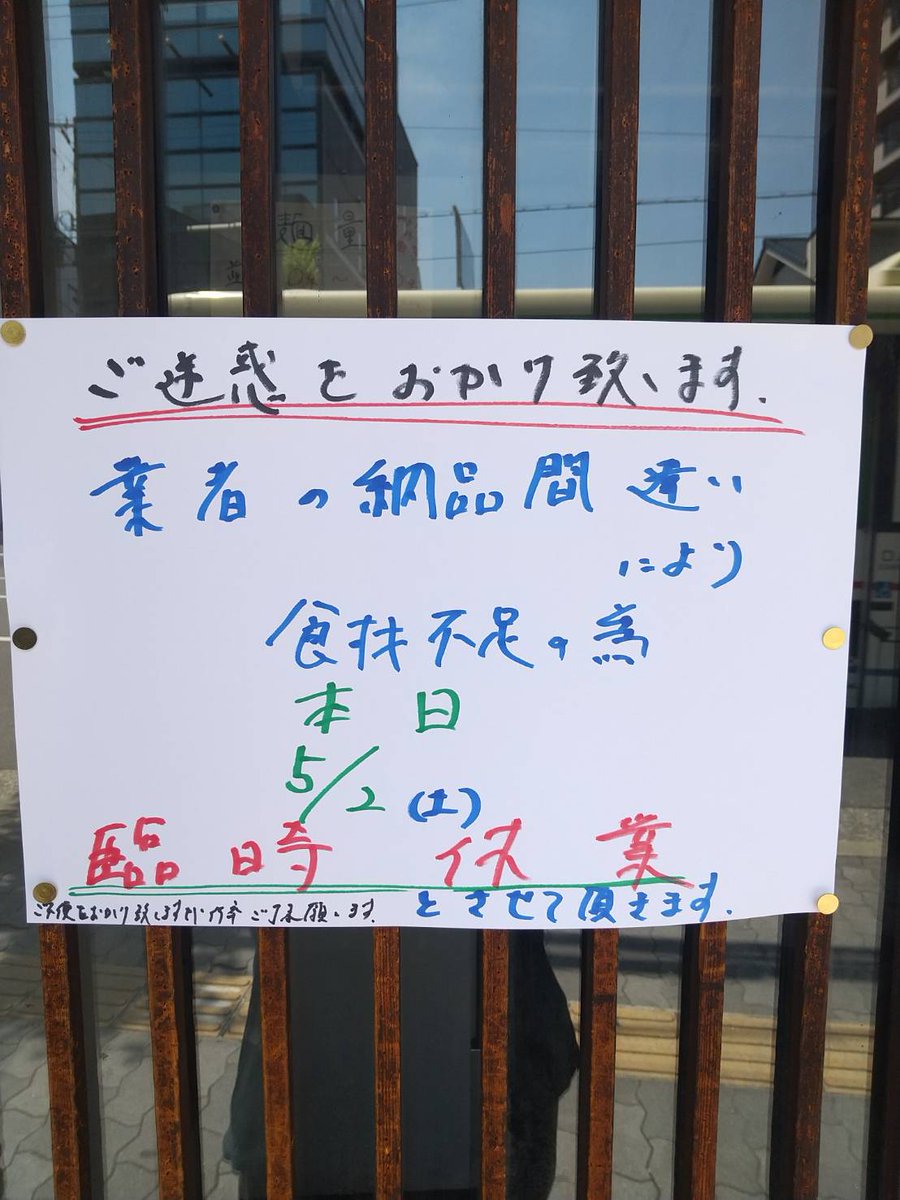 ご迷惑をおかけ致します.
業者の納品間違い
により
食材不足の為
本日
5/2 (土)
臨時休業
とさせて頂きます.
ご不便をおかけ致しますが何卒ご了承願います.
麺 量